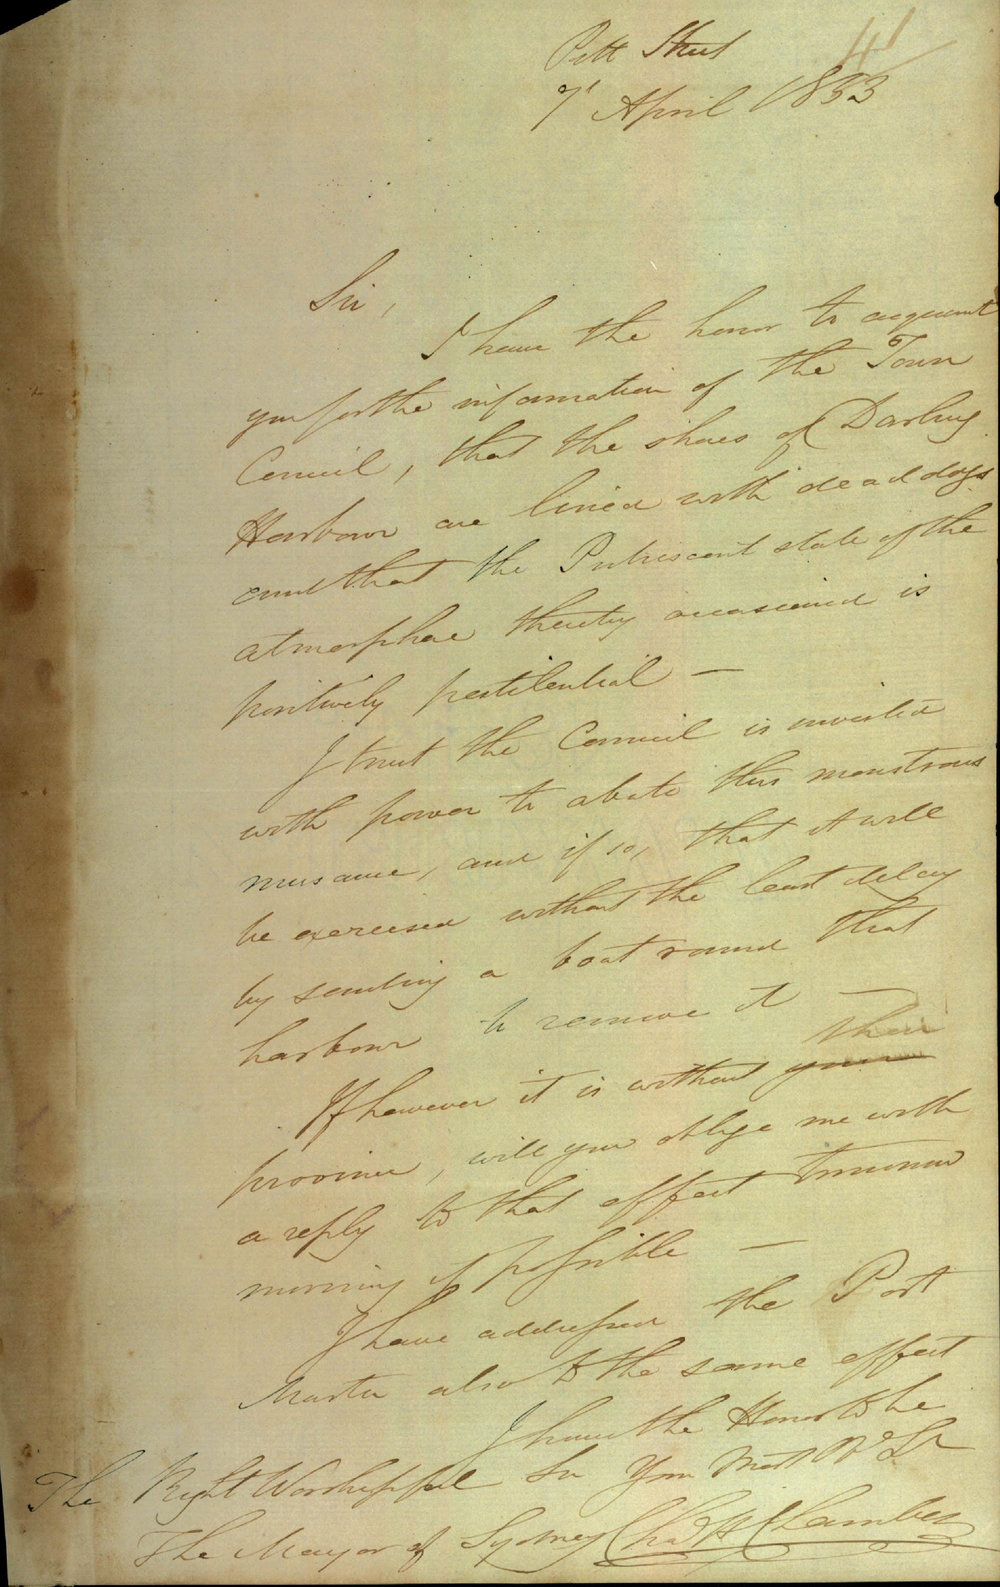 Pitt Street 41
7th April 1853
Sir,
I have the honor to acquaint
you for the information of the Town
Council, that the shores of Darling
Harbour are lined with dead dogs
and that the Putrescent state of the
atmosphere thereby occasioned is
positively pestilential —
I trust the Council is invested
with power to abate this monstrous
nuisance, and if so, that it will
be exercised without the least delay
by sending a boat round that
harbour to remove it —
their
If however it is without your
province, will you oblige me with
a reply to that effect tomorrow
morning if possible —
I have addressed the Port
Master also to the same effect
I have the Honor to be
The Right Worshipful Sir Your Most
The Mayor of Sydney Chas H Chambers